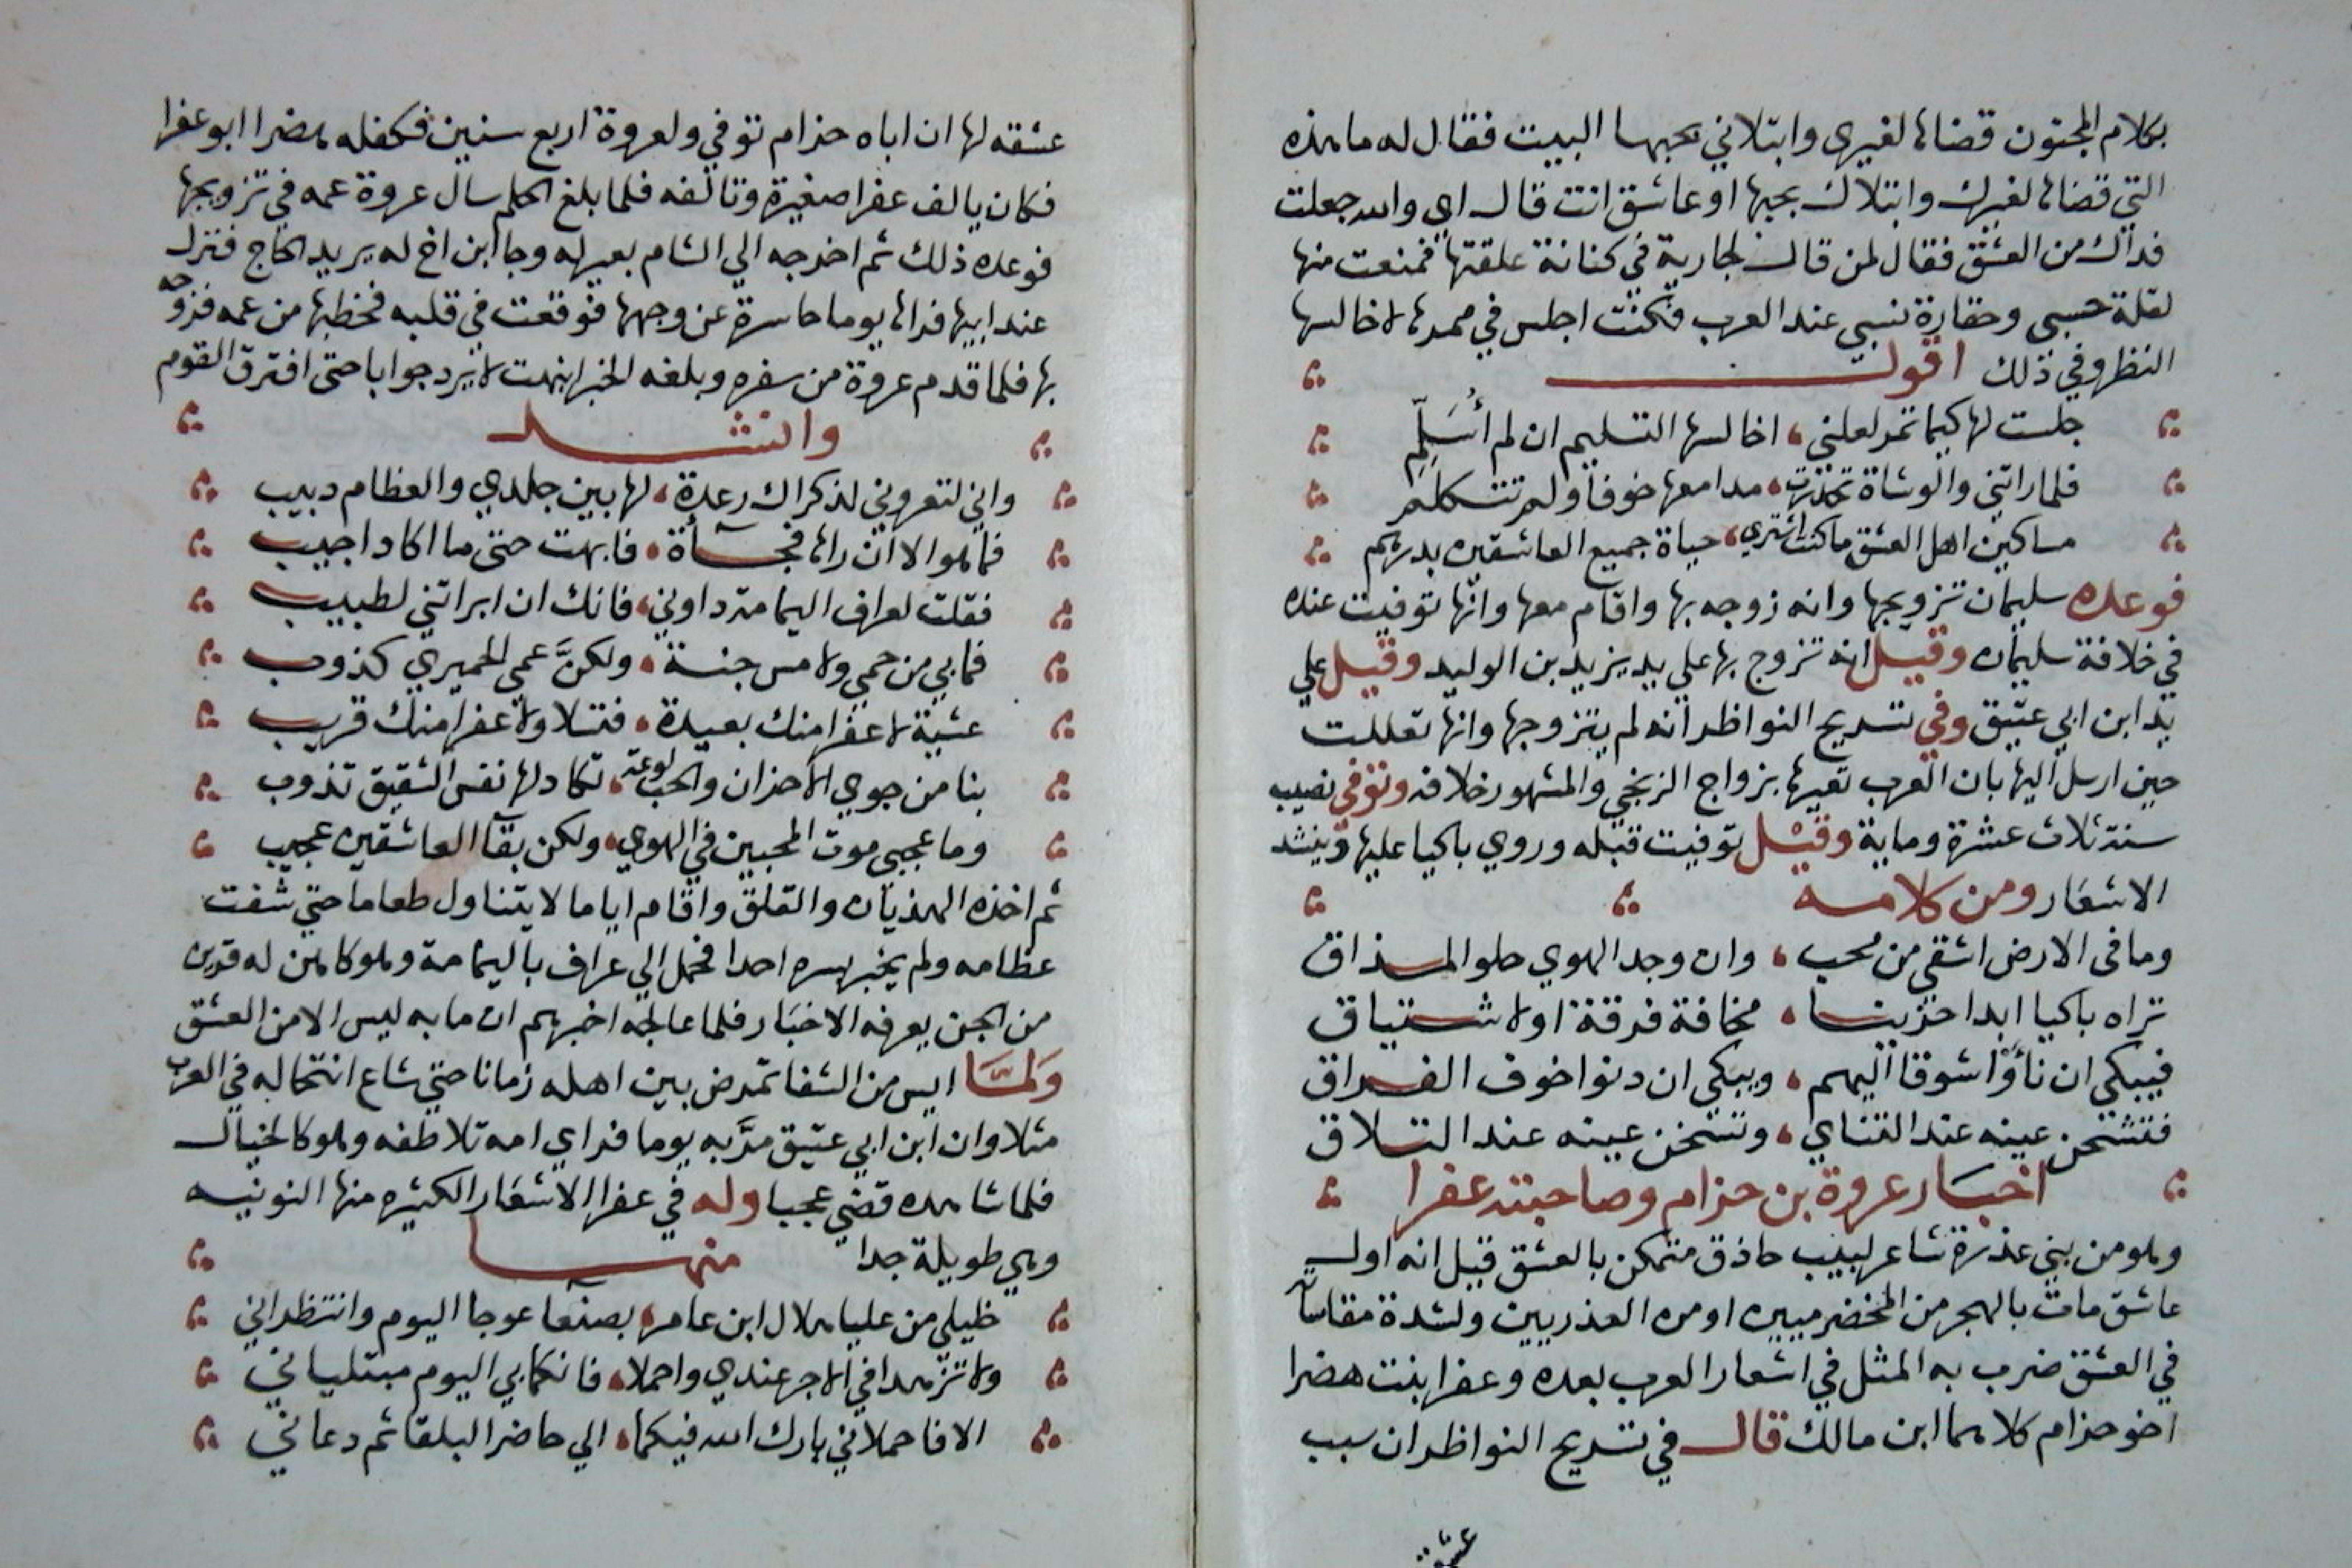 بكلام المجنون قضاها لغيري وابتلاني بحبها البيت فقال له ما هذه
التي قضاها لغيرك وابتلاك بحبها او عاشق انت قال اي والله جعلت
فداك من العشق فقال لمن قال لجارية في كنانة علقتها فمنعت منها
لقلة حسبي وحقارة نسبي عند العرب فكنت اجلس في ممرها لاخالسها
النظر وفي ذلك اقول
جلست لها كيما تمر لعلني اخالسها التسليم ان لم أُسَلِّمِ
فلما راتني والوشاة تحدرت مدامعها خوفا ولم تتكلم
مساكين اهل العشق ما كنت اشتري حياة جميع العاشقين بدرهم
فوعده سليمان تزويجها وانه زوجه بها واقام معها وانها توفيت عنده
في خلافة سليمان وقيل انه تزوج بها علي يد يزيد بن الوليد وقيل علي
يد ابن ابي عتيق وفي تسريح النواظر انه لم يتزوجها وانها تعللت
حين ارسل اليها بان العرب تعيرها بزواج الزنجي والمشهور خلافه وتوفي نصيب
سنة ثلاث عشرة وماية وقيل توفيت قبله وروي باكيا عليها وينشد
الاشعار ومن كلامه
وما في الارض اشقي من محب وان وجد الهوي حلو المذاق
تراه باكيا ابدا حزينا مخافة فرقة او لاشتياق
فيبكي ان نأوا شوقا اليهم ويبكي ان دنوا خوف الفراق
فتسخن عينه عند التناي وتسخن عينه عند التلاق
اخبار عروة بن حزام وصاحبته عفرا
وهو من بني عذرة شاعر لبيب حاذق متمكن بالعشق قيل انه اول
عاشق مات بالهجر من المخضرميين او من العذريين ولشدة مقاساته
في العشق ضرب به المثل في اشعار العرب بعده وعفرا بنت هصرا
اخو حزام كلاهما ابن مالك قال في تسريح النواظر ان سبب
عشقه
عشقه لها ان اباه حزام توفي ولعروة اربع سنين فكفله هصرا ابو عفرا
فكان يالف عفرا صغيرة وتالفه فلما بلغ الحلم سال عروة عمه في تزويجها
فوعده ذلك ثم اخرجه الي الشام بعير له وجا ابن اخ له يريد الحاج فنزل
عند ابيها فراها يوما حاسرة عن وجهها فوقعت في قلبه فخطبها من عمه فزوجه
بها فلما قدم عروة من سفره وبلغه الخبر ابنهت لا يرد جوابا حتى افترق القوم
وانشد
واني لتعروني لذكراك رعدة لها بين جلدي والعظام دبيب
فما هو الا ان راها فجأة فابهت حتى ما اكاد اجيب
فقلت لعراف اليمامة داوني فانك ان ابراتني لطبيب
فما بي من حمي ولا مس جنة ولكنَّ عمي الحميري كذوب
عشية لا عفرا منك بعيدة فتسلا ولا عفرا منك قريب
بنا من جوي الاحزان والحب لوعة تكاد لها نفس الشقيق تذوب
وما عجبي موت المحبين في الهوي ولكن بقآ العاشقين عجيب
ثم اخذه الهذيان والقلق واقام اياما لا يتناول طعاما حتي شفت
عظامه ولم يخبر بسره احدا فحمل الي عراف باليمامة وهو كاهن له قرين
من الجن يعرفه الاخبار فلما عالجه اخبرهم ان ما به ليس الا من العشق
وَلمَّا ايس من الشفا تمرض بين اهله زمانا حتي شاع انتحاله في العرب
مثلا وان ابن ابي عتيق مرَّ به يوما فراي امه تلاطفه وهو كالخيال
فلما شاهده قضي عجبا وله في عفرا الاشعار الكثيره منها النونيه
وهي طويلة جدا منها
خليلي من عليا هلال ابن عامر بصنعا عوجا اليوم وانتظراني
ولا تزهدا في الاجر عندي واجملا فانكما بي اليوم مبتلياني
الا فاحملاني بارك الله فيكما الي حاضر البلقا ثم دعاني